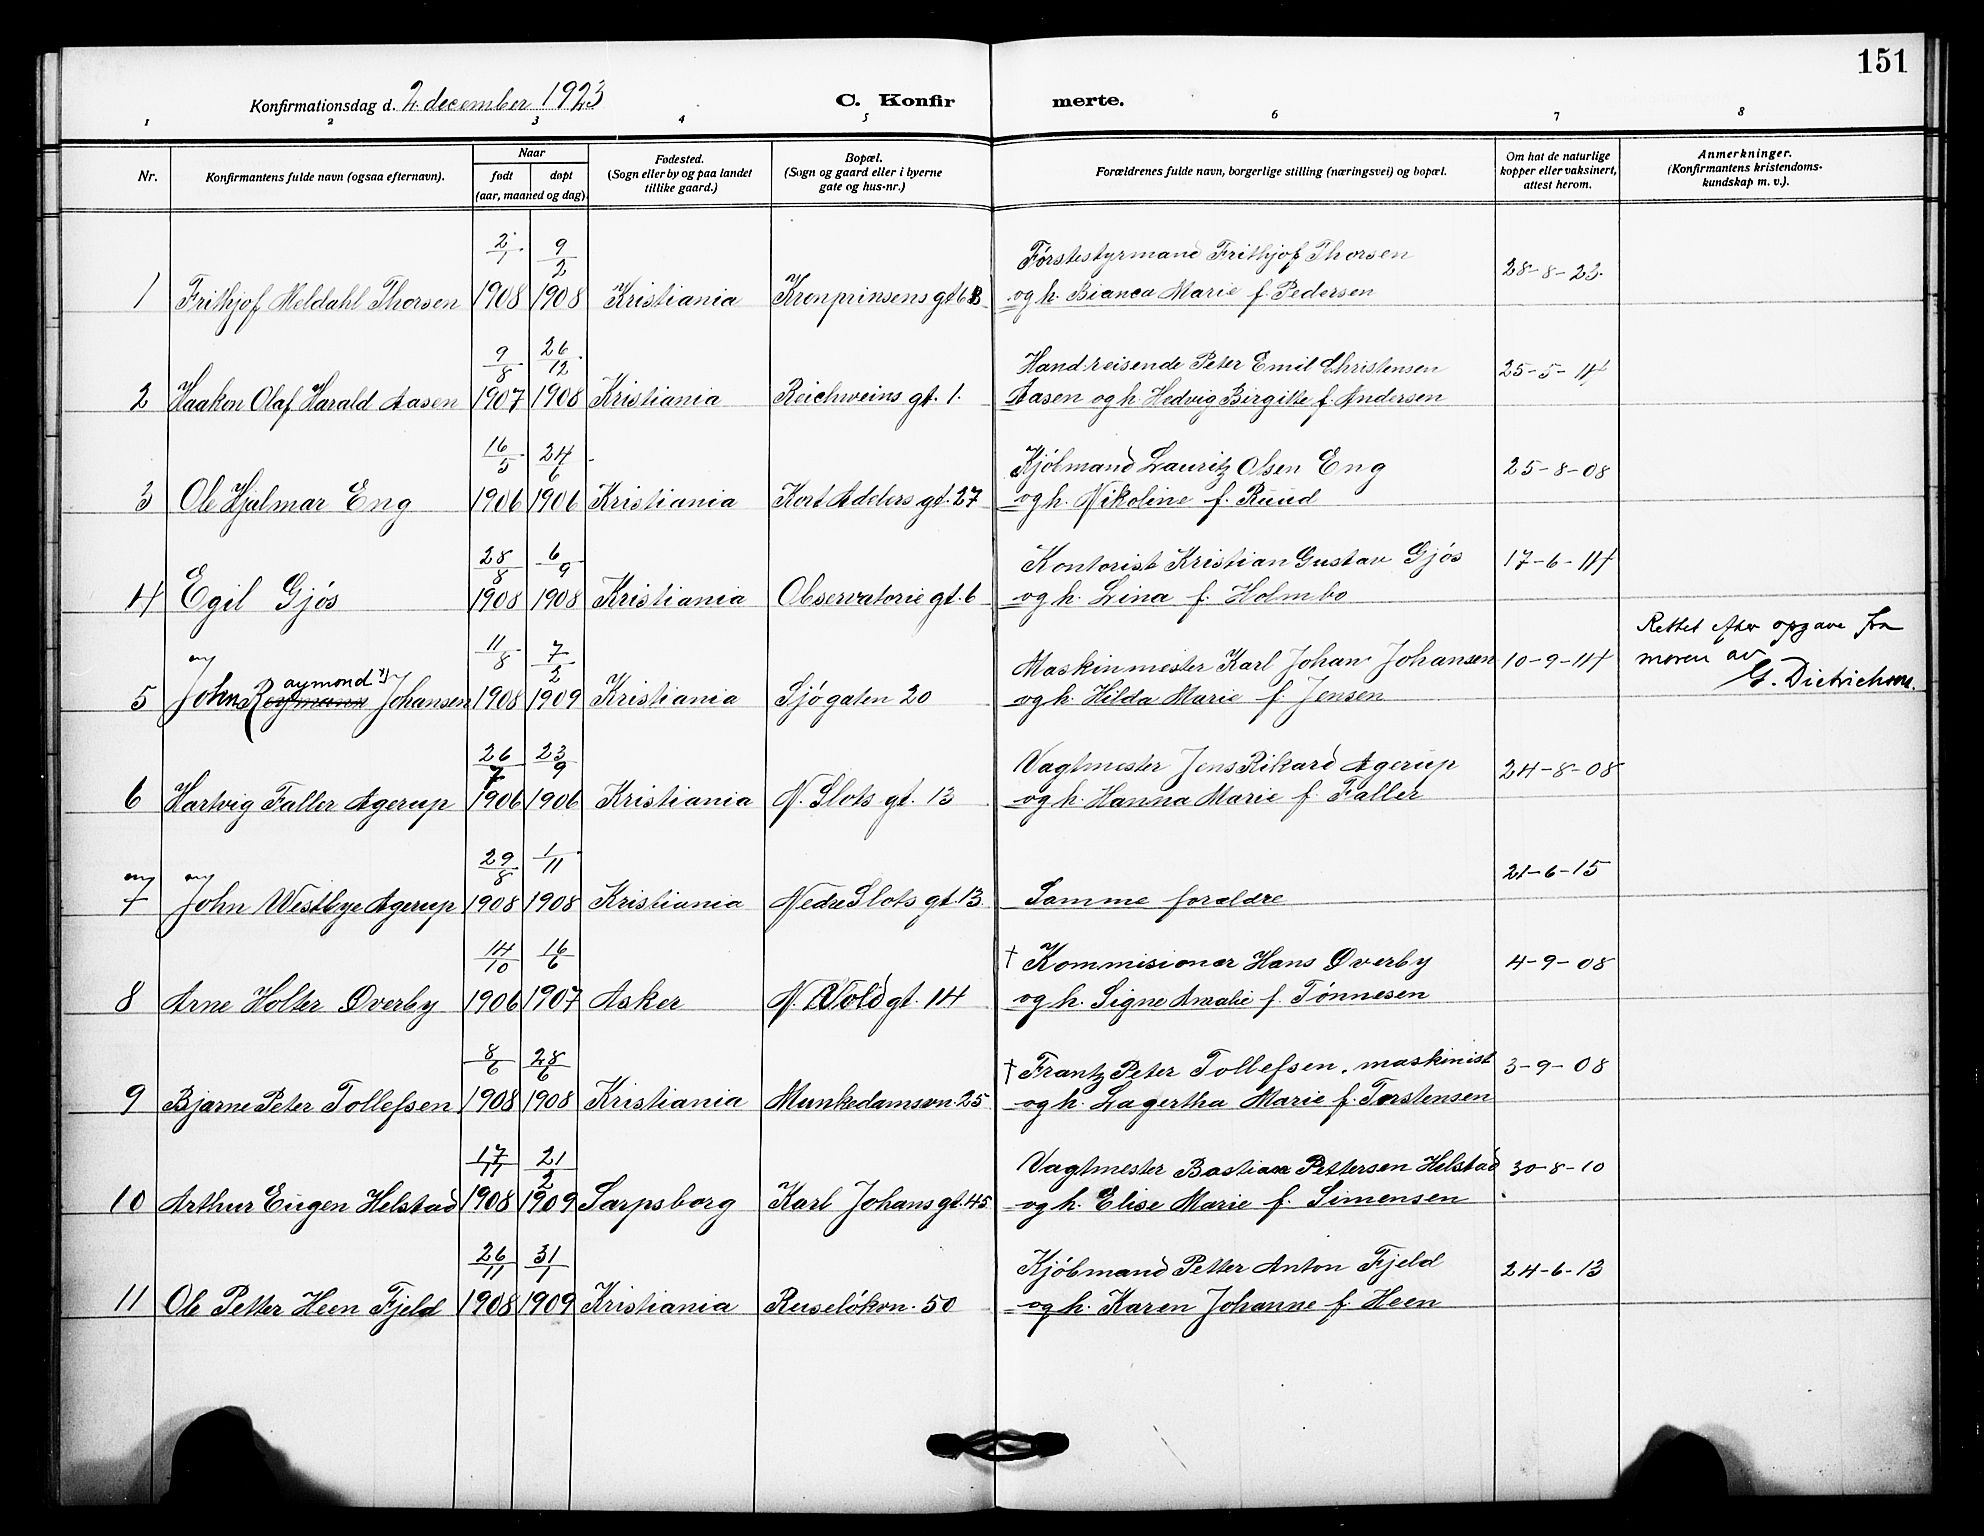 151
Konfirmationsdag d. 2 december 1923 C. Konfirmerte.
1 2 3 4 5 6 7 8
Nr. Konfirmantens fulde navn (ogsaa efternavn). Naar født døpt (aar, maaned og dag) Fødested. (Sogn eller by og paa landet tillike gaard.) Bopæl. (Sogn og gaard eller i byerne gate og hus-nr.) Forældrenes fulde navn, borgerlige stilling (næringsvei) og bopæl. Om hat de naturlige kopper eller vaksinert, attest herom. Anmerkninger. (Konfirmantens kristendoms-kundskap m. v.).
2/1 9/2 Førstestyrmand Frithjof Thorsen 28-8-23.
1 Frithjof Meldahl Thorsen 1908 1908 Kristiania Kronprinsens gt 6B og h. Bianca Marie f. Pedersen
9/8 26/12 Hand.reisende Peter Emil Christensen 25-5-14
2 Haakon Olaf Harald Aasen 1907 1908 Kristiania Reichweins gt. 1. Aasen og h. Hedvig Birgitte f. Andersen
16/5 24/6 Kjøbmand Lauritz Olsen Eng 25-8-08
3 Ole Hjalmar Eng 1906 1906 Kristiania Kort Adelers gt. 27 og h. Nikoline f. Ruud
28/8 6/9 Kontorist Kristian Gustav Gjøs 17-6-14
4 Egil Gjøs 1908 1908 Kristiania Observatorie gt. 6 og h. Lina f. Holmbo
11/8 7/2 Maskinmester Karl Johan Johansen 10-9-14 Rettet efter opgave fra
aymond moren av
5 John Roymann Johansen 1908 1909 Kristiania Sjøgaten 20 og h. Hilda Marie f. Jensen G. Dietrichson.
26/7 23/9 Vagtmester Jens Rikard Agerup 24-8-08
6 Hartvig Faller Agerup 1906 1906 Kristiania N. Slots gt. 13 og h. Hanna Marie f. Faller
29/8 1/11 21-6-15
7 John Westbye Agerup 1908 1908 Kristiania Nedre Slots gt. 13 Samme forældre
14/10 16/6 † Kommisionær Hans Øverby 4-9-08
8 Arne Holter Øverby 1906 1907 Asker N. Vold gt. 14 og h. Signe Amalie f. Tønnesen
8/6 28/6 † Frantz Peter Tollefsen, maskinist 3-9-08
9 Bjarne Peter Tollefsen 1908 1908 Kristiania Munkedamsvn. 25 og h. Lagertha Marie f. Torstensen
17/11 21/2 Vagtmester Bastian Pettersen Helstad 30-8-10
10 Arthur Eugen Helstad 1908 1909 Sarpsborg Karl Johans gt. 45 og h. Elise Marie f. Simensen
26/11 31/1 Kjøbmand Petter Anton Fjeld 24-6-13
11 Ole Petter Heen Fjeld 1908 1909 Kristiania Ruseløkvn. 50 og h. Karen Johanne f. Heen